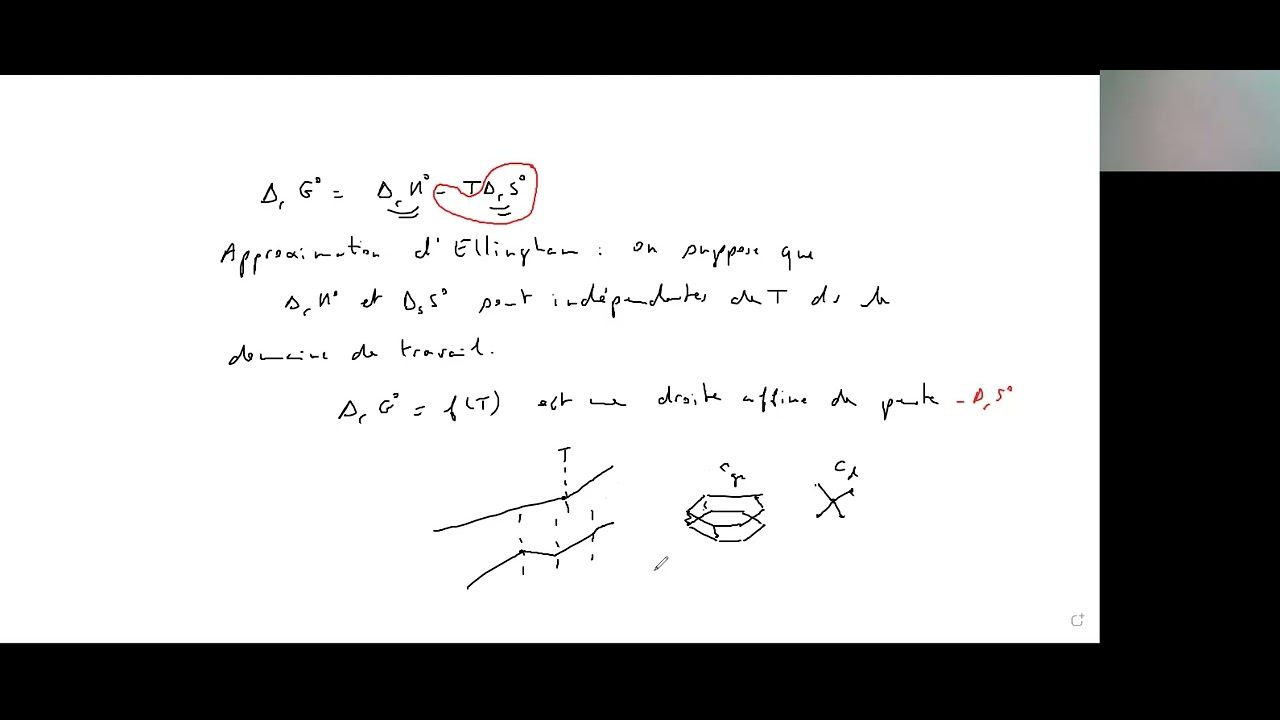 Δr G° = Δr H° - TΔr S°
Approximation d'Ellingham : on suppose que
Δr H° et Δs S° sont indépendantes de T ds le
domaine de travail.
Δr G° = f(T) est une droite affine de pente - Δr S°
T
C gr
C d